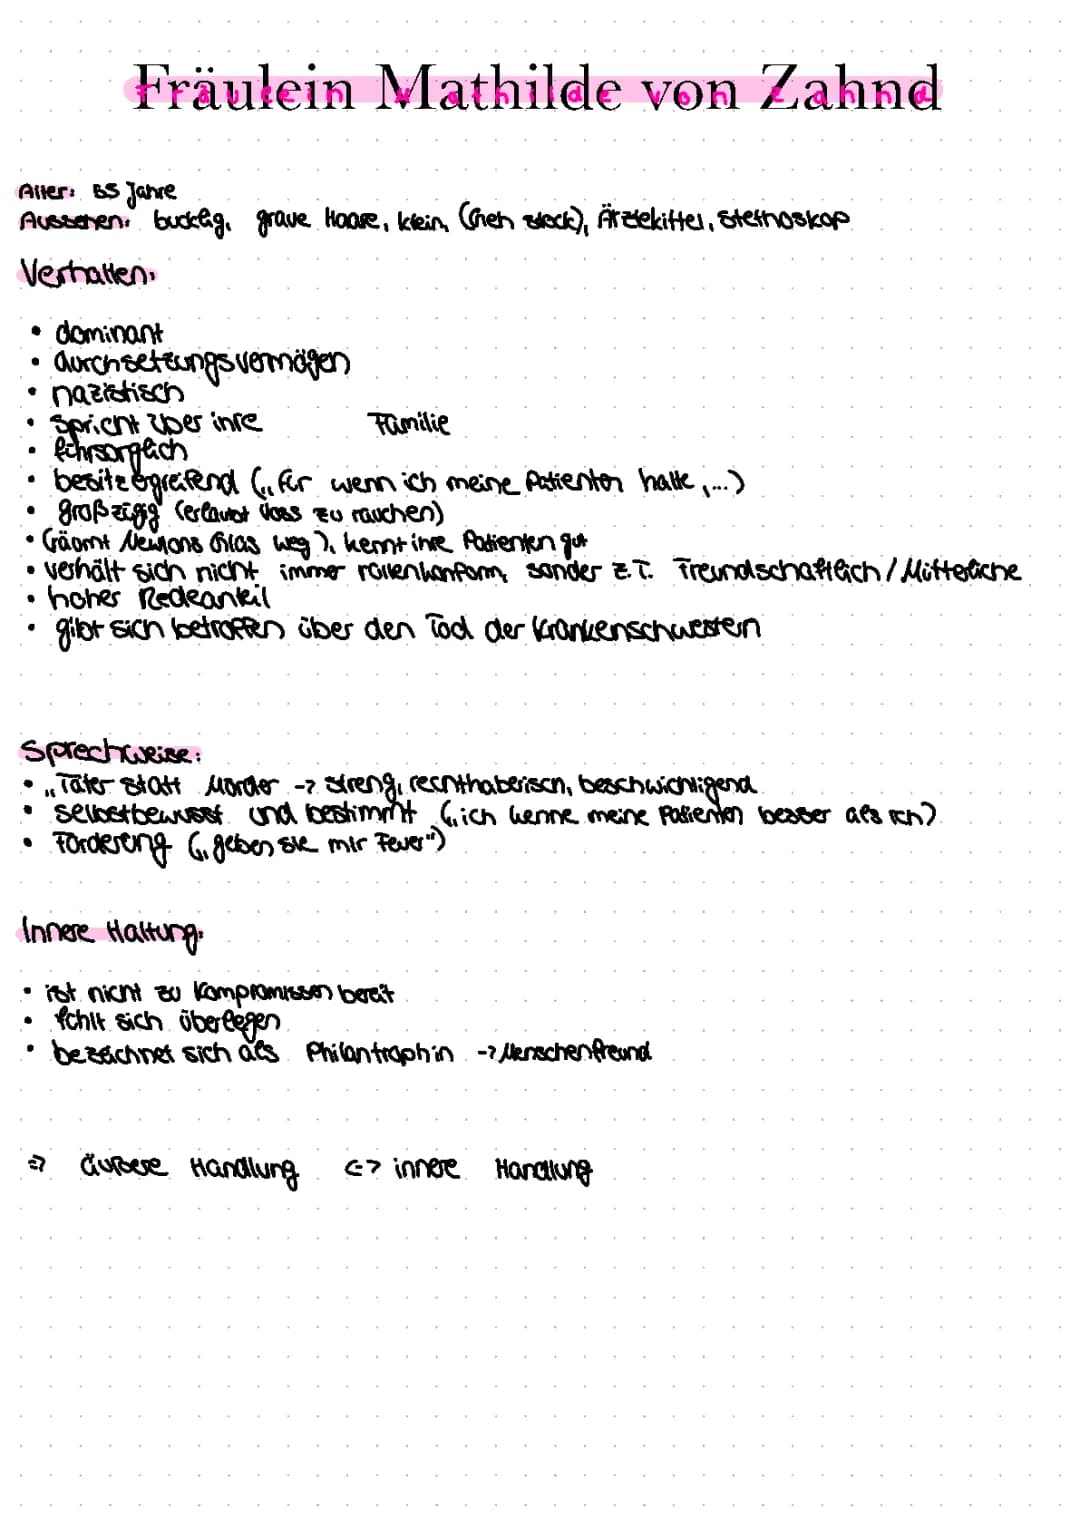 Fräulein Mathilde von Zahnd
Alter: 55 Jahre
Aussehen: bucklig, graue Haare, klein, (Geh stock), Ärztekittel, Stethoskop
Verhalten:
• dominant
• durchsetzungsvermögen
• nazistisch
• spricht über ihre Familie
• führsorglich
• besitzergreifend („für wenn ich meine Patienten halte,...)
• großzügig (erlaubt Voss zu rauchen)
• (räumt Newtons Glas weg), kennt ihre Patienten gut
• verhält sich nicht immer rollenkonform, sonder z.T. Freundschaftlich / Mütterliche
• hoher Redeanteil
• gibt sich betroffen über den Tod der Krankenschwestern
Sprechweise:
• „Täter statt Mörder -> streng, rechthaberisch, beschwichtigend
• selbstbewusst und bestimmt („ich kenne meine Patienten besser als ich)
• Forderung („geben sie mir Feuer")
Innere Haltung:
• ist nicht zu Kompromissen bereit
• fühlt sich überlegen
• bezeichnet sich als Philantrophin -> Menschenfreund
=> äußere Handlung <-> innere Handlung